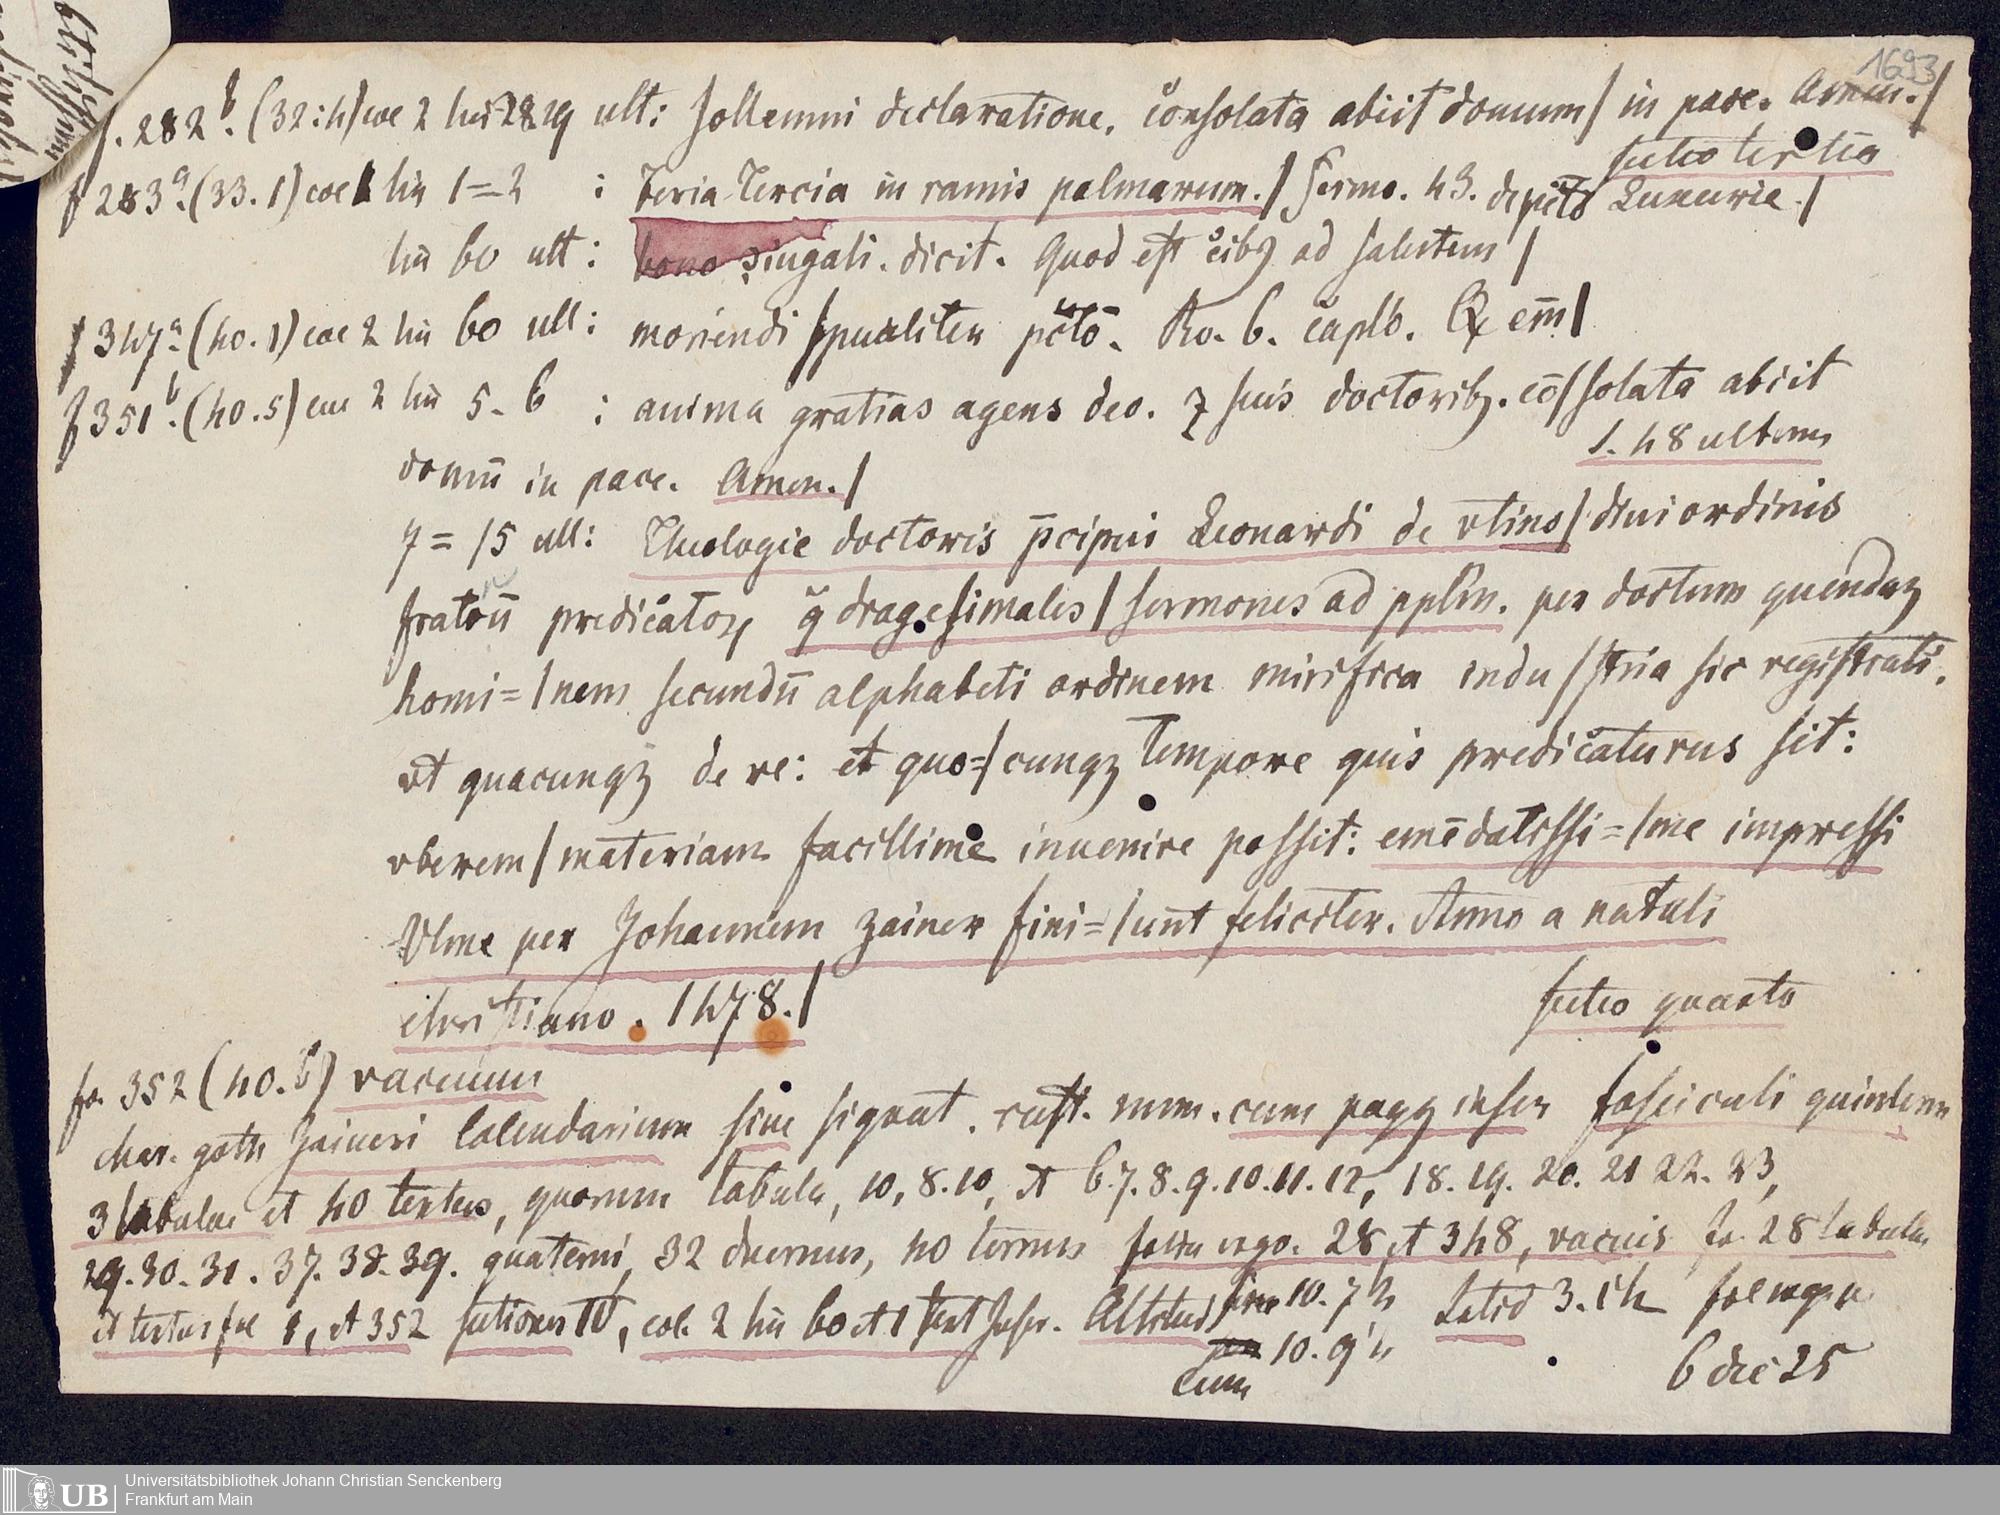 1693
f. 282b. (32:4) coe 2 lin 28 29 ult: sollemni declaratione. Consolata abiit domum / in pace. Amen. /
sectio tertia
f 283a. (33. 1) coe 1 lin 1=2 : Feria Tercia in ramis palmarum. / Sermo. 43. de pctō Luxurie. /
lin 60 ult: bono ꝯiugali. dicit. Quod est cibꝫ ad salutem /
f 347a (40. 1) coe 2 lin 60 ult: moriendi spualiter pctō. Ro. 6. capło. Q em̄ /
f 351b. (40. 5) coe 2 lin 5-6 : anima gratias agens deo. ⁊ suis doctoribꝫ. cō/solata abiit
domū in pace. Amen. /
l. 48 ultimus
7=15 ult: Theologie doctoris p̄cipui Leonardi de vtino / diui ordinis
fratrū predicatoꝝ q̄dragesimales / sermones ad pplm. per doctum quendaꝫ
homi=/nem secundū alphabeti ordinem mirifica indu/stria sic registrati.
vt quacunqꝫ de re: et quo=/cunqꝫ tempore quis predicaturus sit:
vberem / materiam facillime inuenire possit: emēdatissi=/me impressi
Vlme per Johannem zainer fini=/unt feliciter. Anno a natali
christiano. 1478. /
sectio quarta
fo. 352 (40. 6) vacuum
char. goth Zaineri Calendarium sine signat. cust. num. cum pagg inscr fasciculi quinterni
3 tabulae et 40 textus, quorum tabula, 10, 8. 10, et 6. 7. 8. 9. 10. 11. 12, 18. 19. 20. 21 22. 23,
29. 30. 31. 37. 38. 39. quaterni, 32 duernus, 40 ternus folia ergo. 28 et 348, vacuis fo. 28 tabulae
et textus fol 1, et 352 sectiones IV, col. 2 lin 60 et 1 text Inscr. Altitud sine 10. 7
cum 10. 9
Latid 3.
6 dec 25
Universitätsbibliothek Johann Christian Senckenberg
Frankfurt am Main
UB